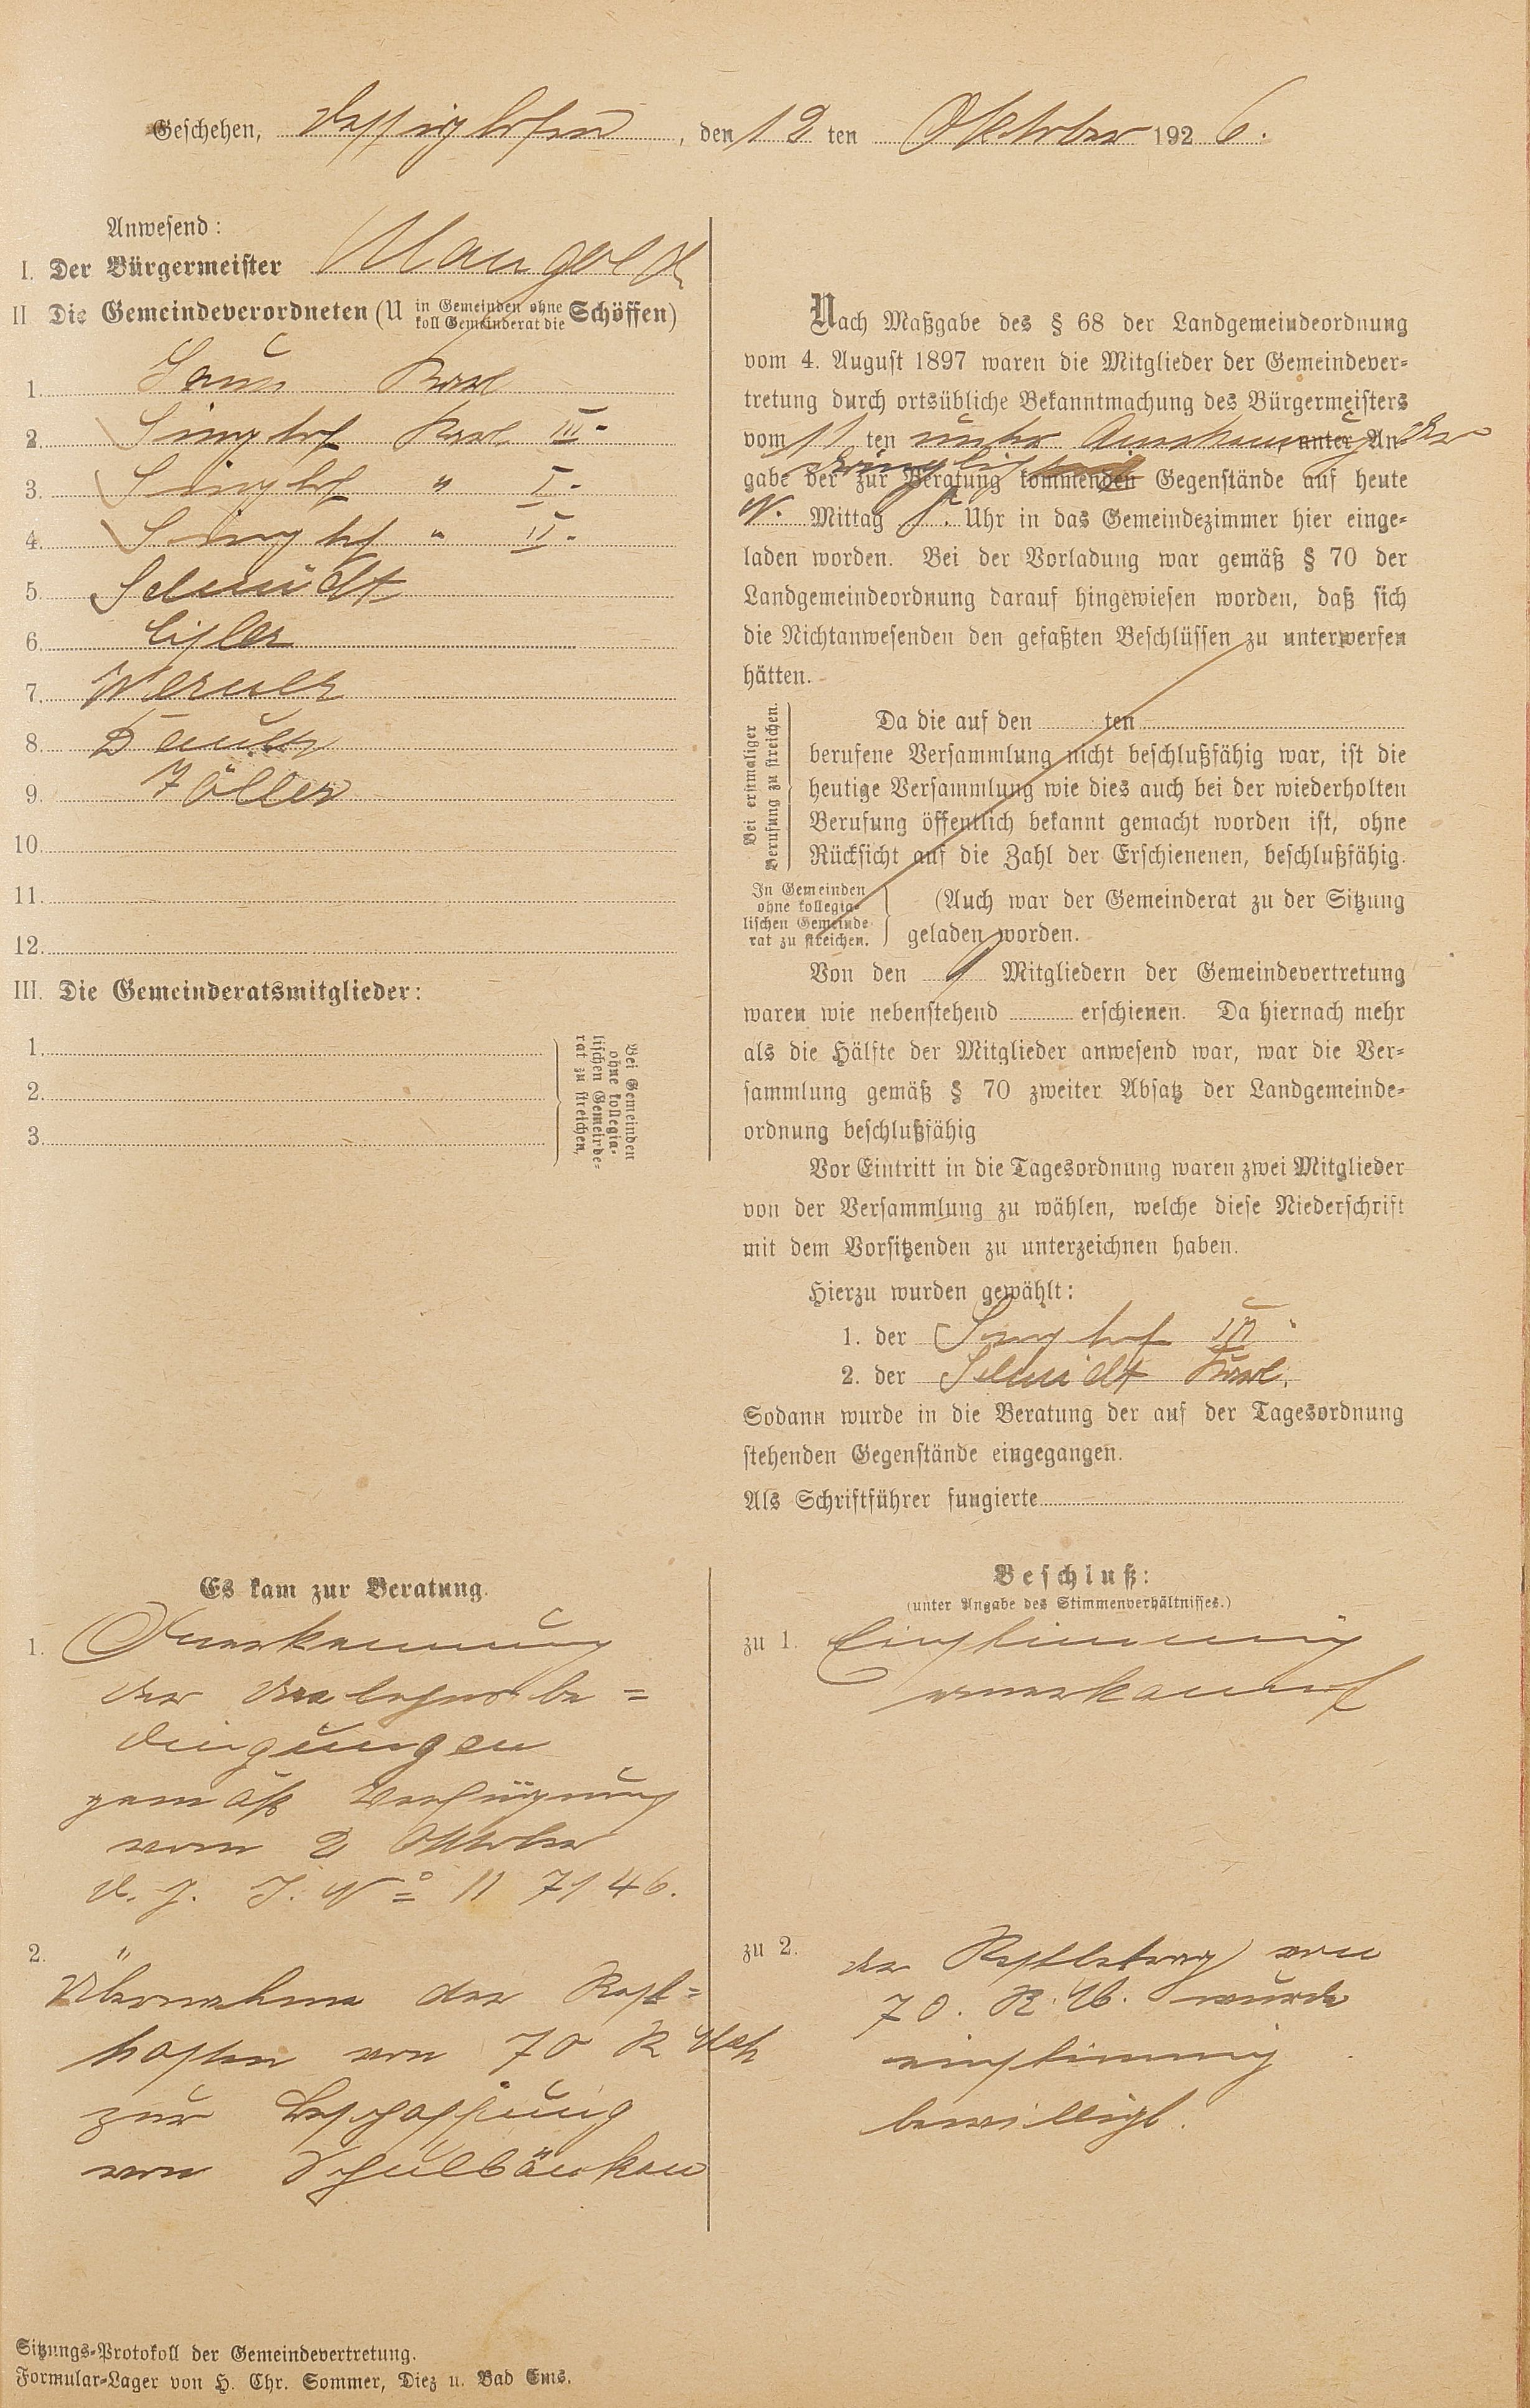 Geschehen, Dessighofen, den 12 ten Oktober 1926.
Anwesend:
I. Der Bürgermeister Mangold
II. Die Gemeindeverordneten (U in Gemeinden ohne koll Gemeinderat die Schöffen)
1. Karl
2. Singhof Karl III.
3. Singhof " I.
4. Singhof " II.
5. Schmidt
6.
7. Werner
8.
9. Zöller
10.
11.
12.
III. Die Gemeinderatsmitglieder:
1.
2.
3.
Bei Gemeinden
ohne kollegia-
lischen Gemeinde-
rat zu streichen.
Nach Maßgabe des § 68 der Landgemeindeordnung
vom 4. August 1897 waren die Mitglieder der Gemeindever-
tretung durch ortsübliche Bekanntmachung des Bürgermeisters
vom 11 ten unter Anerkennung, unter An- der
Dringlichkeit
gabe der zur Beratung kommenden Gegenstände auf heute
N. Mittag Uhr in das Gemeindezimmer hier einge-
laden worden. Bei der Vorladung war gemäß § 70 der
Landgemeindeordnung darauf hingewiesen worden, daß sich
die Nichtanwesenden den gefaßten Beschlüssen zu unterwerfen
hätten.
Bei erstmaliger
Berufung zu streichen.
Da die auf den ten
berufene Versammlung nicht beschlußfähig war, ist die
heutige Versammlung wie dies auch bei der wiederholten
Berufung öffentlich bekannt gemacht worden ist, ohne
Rücksicht auf die Zahl der Erschienenen, beschlußfähig.
In Gemeinden
ohne kollegia-
lischen Gemeinde-
rat zu streichen.
(Auch war der Gemeinderat zu der Sitzung
geladen worden.
Von den 9 Mitgliedern der Gemeindevertretung
waren wie nebenstehend erschienen. Da hiernach mehr
als die Hälfte der Mitglieder anwesend war, war die Ver-
sammlung gemäß § 70 zweiter Absatz der Landgemeinde-
ordnung beschlußfähig
Vor Eintritt in die Tagesordnung waren zwei Mitglieder
von der Versammlung zu wählen, welche diese Niederschrift
mit dem Vorsitzenden zu unterzeichnen haben.
Hierzu wurden gewählt:
1. der Singhof III
2. der Schmidt Karl.
Sodann wurde in die Beratung der auf der Tagesordnung
stehenden Gegenstände eingegangen.
Als Schriftführer fungierte
Es kam zur Beratung.
1. Anerkennung
der Darlehnsbe=
dingungen
gemäß Verfügung
vom 2 Oktober
d. J. J. No II 7146.
2. Übernahme der Rest=
kosten von 70 R Mk
zur Beschaffung
von Schulbänken
Beschluß:
(unter Angabe des Stimmenverhältnisses.)
zu 1. Einstimmig
anerkannt
zu 2. der Restbetrag von
70. R. M. wurde
einstimmig
bewilligt.
Sitzungs-Protokoll der Gemeindevertretung.
Formular-Lager von H. Chr. Sommer, Diez u. Bad Ems.